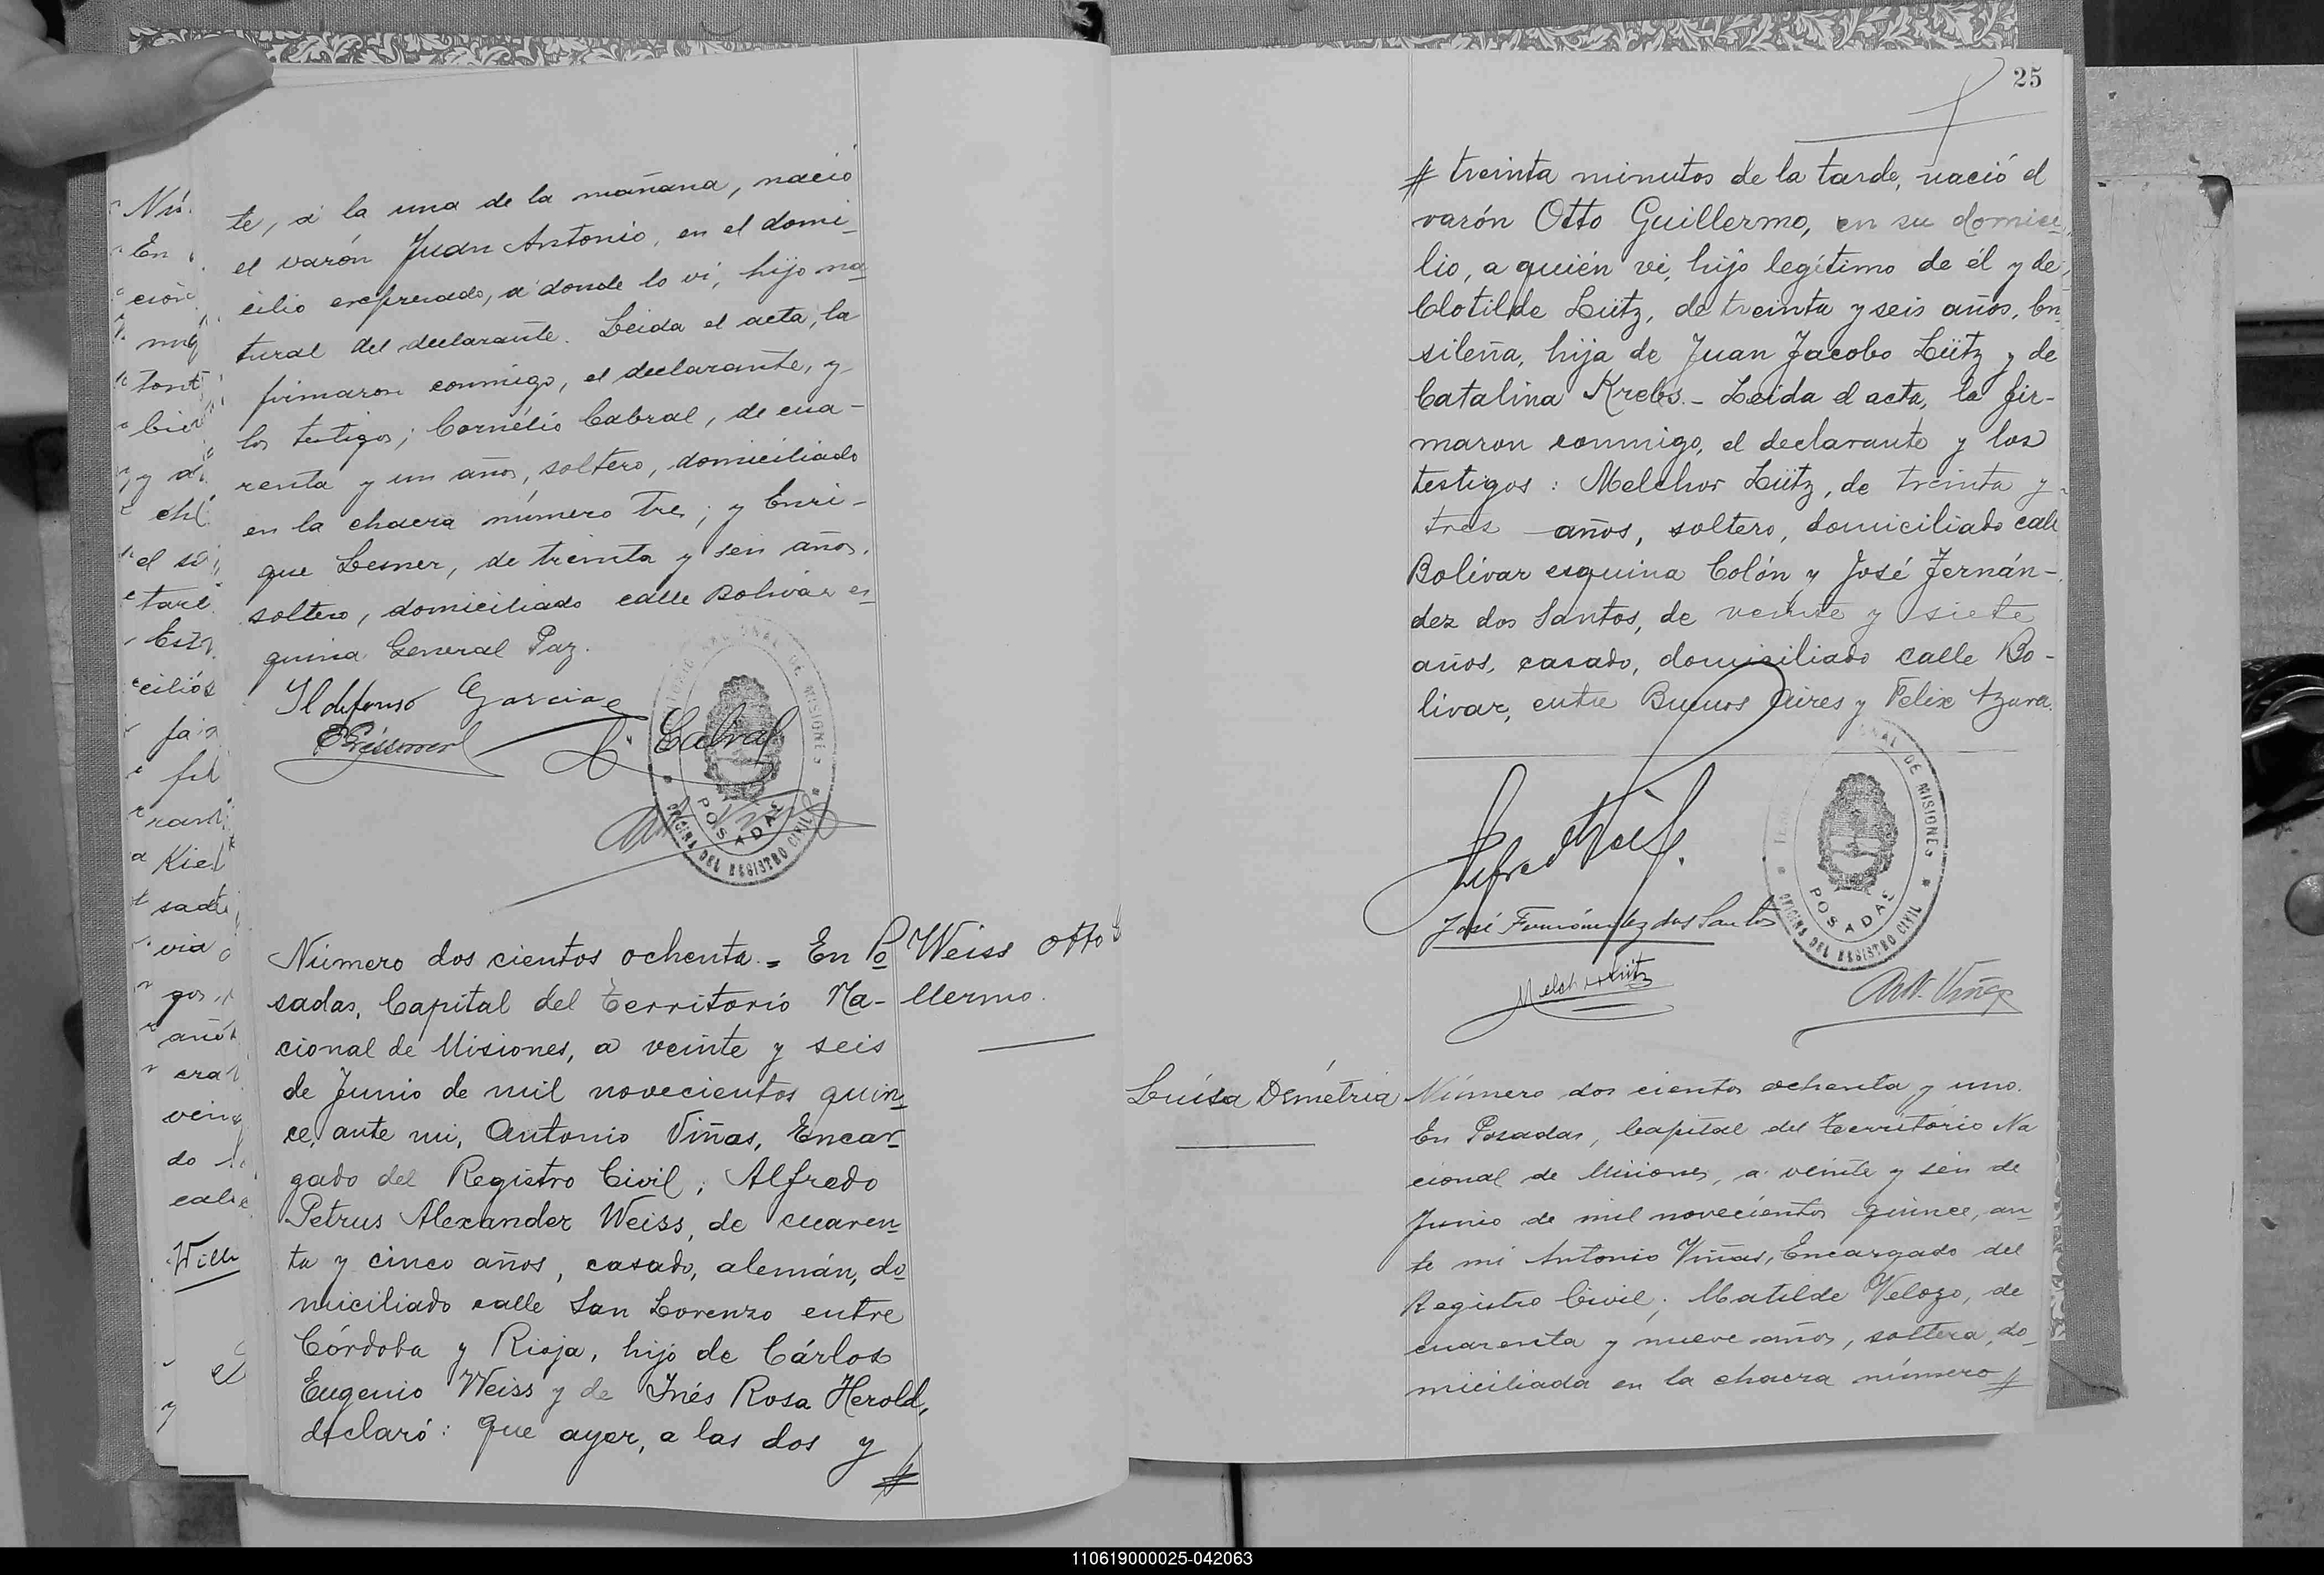 te, a la una de la mañana, nació
el varón Juan Antonio, en el domi-
cilio expresado, a donde lo vi, hijo na-
tural del declarante. Leida el acta, la
firmaron conmigo, el declarante, y
los testigos; Cornélio Cabral, de cua-
renta y un años, soltero, domiciliado
en la chacra número tres; y Enri-
que Lesner, de treinta y seis años,
soltero, domiciliado calle Bolivar es-
quina General Paz.
Ildefonso Garcia
Cabral
POSADAS
OFICINA DEL REGISTRO CIVIL
Número dos cientos ochenta.= En Po
sadas, Capital del Territorio Na-
cional de Misiones, a veinte y seis
de Junio de mil novecientos quin-
ce, ante mi, Antonio Viñas, Encar-
gado del Registro Civil; Alfredo
Petrus Alexander Weiss, de cuaren-
ta y cinco años, casado, alemán, do
miciliado calle San Lorenzo entre
Córdoba y Rioja, hijo de Cárlos
Eugenio Weiss y de Inés Rosa Herold,
declaró: que ayer, a las dos y #
Weiss Otto G
llermo.
25
# treinta minutos de la tarde, nació el
varón Otto Guillermo, en su domici-
lio, a quién vi, hijo legítimo de él y de
Clotilde Lütz, de treinta y seis años, bra
sileña, hija de Juan Jacobo Lütz y de
Catalina Krebs.- Leida el acta, la fir-
maron conmigo, el declarante y los
testigos: Melchor Lütz, de treinta y
tres años, soltero, domiciliado calle
Bolívar esquina Colón y José Fernán-
dez dos Santos, de veinte y siete
años, casado, domiciliado calle Bo-
livar, entre Buenos Aires y Felix Azara.
Alfredo Weiss.
José Fernández dos Santos
Melchor Lütz
Ant. Viñas
DE MISIONES
POSADAS
OFICINA DEL REGISTRO CIVIL
Luísa Demétria
Número dos cientos ochenta y uno.
En Posadas, Capital del Territorio Na
cional de Misiones, a veinte y seis de
Junio de mil novecientos quince, an-
te mi Antonio Viñas, Encargado del
Registro Civil; Matilde Velozo, de
cuarenta y nueve años, soltera, do-
miciliada en la chacra número #
110619000025-042063